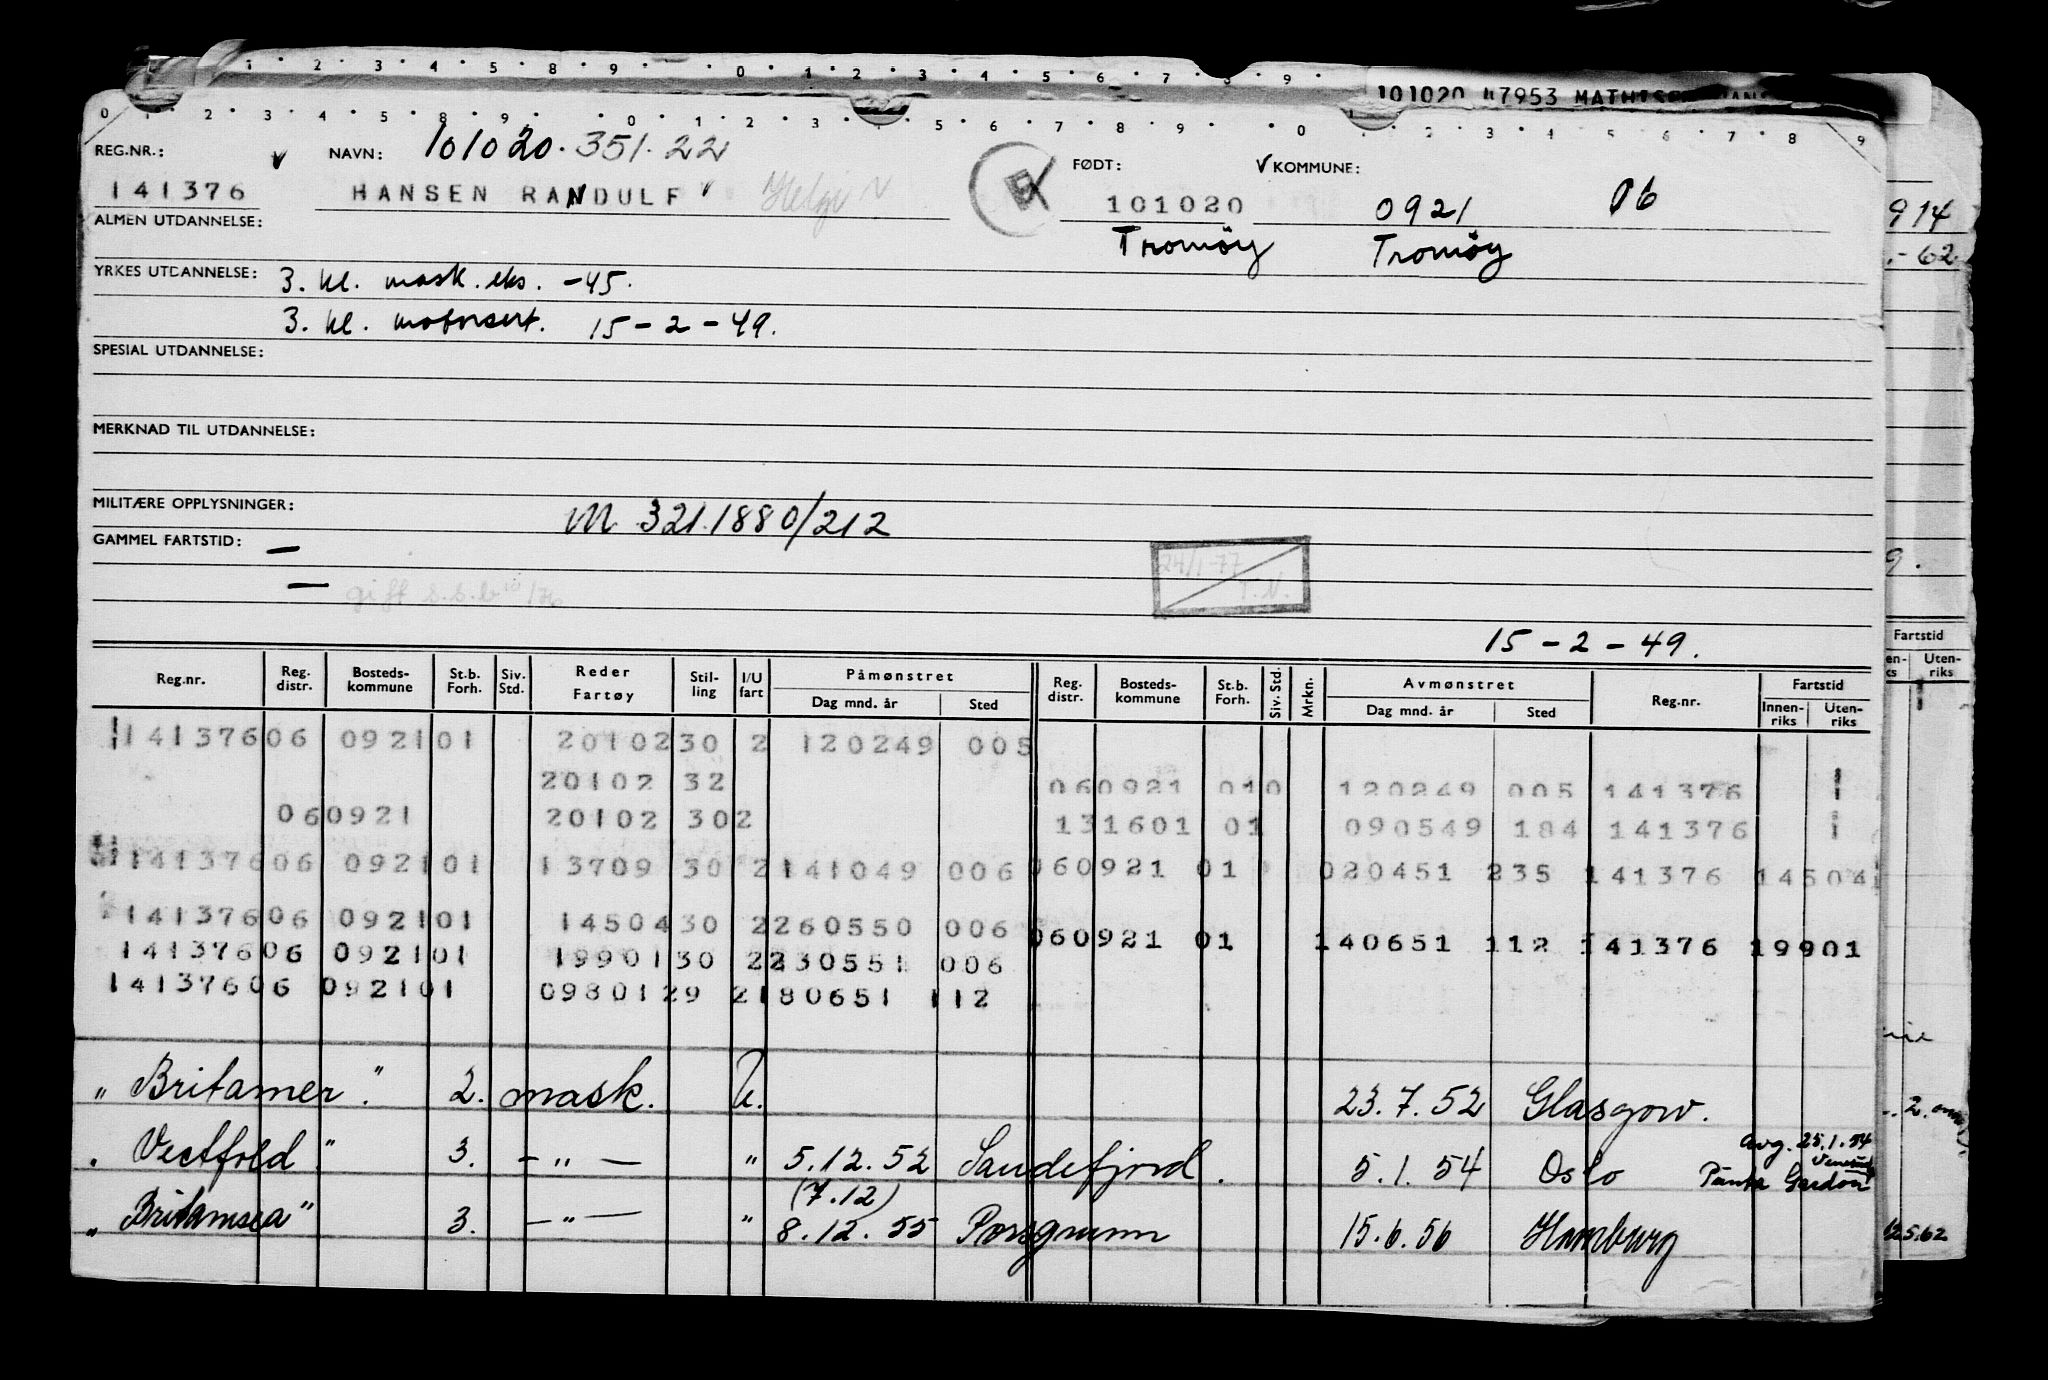 1 2 3 4 5 8 9 0 1 2 3 4 5 6 7 8 9
101020 47953
0 1 2 3 4 5 8 9 0 1 2 3 4 5 6 7 8 9 0 1 2 3 4 5 6 7 8 9
REG.NR.: NAVN: 101020.351.22 FØDT: KOMMUNE:
141376 HANSEN RANDULF Helge 101020 0921 06
ALMEN UTDANNELSE: Tromöy Tromöy
YRKES UTDANNELSE: 3. kl. mask. eks. -45.
3. kl. motorsert. 15-2-49.
SPESIAL UTDANNELSE:
MERKNAD TIL UTDANNELSE:
MILITÆRE OPPLYSNINGER: M 321.1880/212
GAMMEL FARTSTID: —
— gift 24/1-77 T.N.
15-2-49.
Reg.nr. Reg. distr. Bosteds-kommune St.b. Forh. Siv. Std. Reder Fartøy Stil-ling I/U fart Påmønstret Dag mnd. år Sted Reg. distr. Bosteds-kommune St.b. Forh. Siv. Std. Mrkn. Avmønstret Dag mnd. år Sted Reg.nr. Fartstid Innen-riks Uten-riks
141376 06 0921 01 20102 30 2 120249 005
20102 32 060921 010 120249 005 141376
060921 20102 302 131601 01 090549 184 141376
141376 06 0921 01 13709 30 2 141049 006 060921 01 020451 235 141376 14504
141376 06 0921 01 14504 30 2 260550 006
060921 01 140651 112 141376 19901
141376 06 0921 01 19901 30 2 230551 006
141376 06 0921 01 09801 29 2 180651 112
"Britamer". 2. mask. U. 23.7.52 Glasgow.
"Vestfold" 3. -"- " 5.12.52 Sandefjord. 5.1.54 Oslo avg. 25.1.54
(7.12) Punta
"Britamsea" 3. -"- " 8.12.55 Porsgrunn 15.6.56 Hamburg
914
.-62
9.
Fartstid
Uten-riks
2.